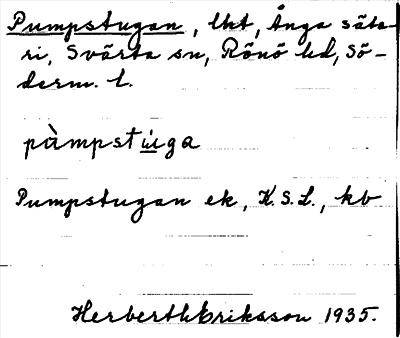 Pumpstugan, lht, Ånga säte-
ri, Svärta sn, Rönö hd, Sö-
derm. l.
pàmpstúga
Pumpstugan ek, K.S.L., kb
Herberth Eriksson 1935.